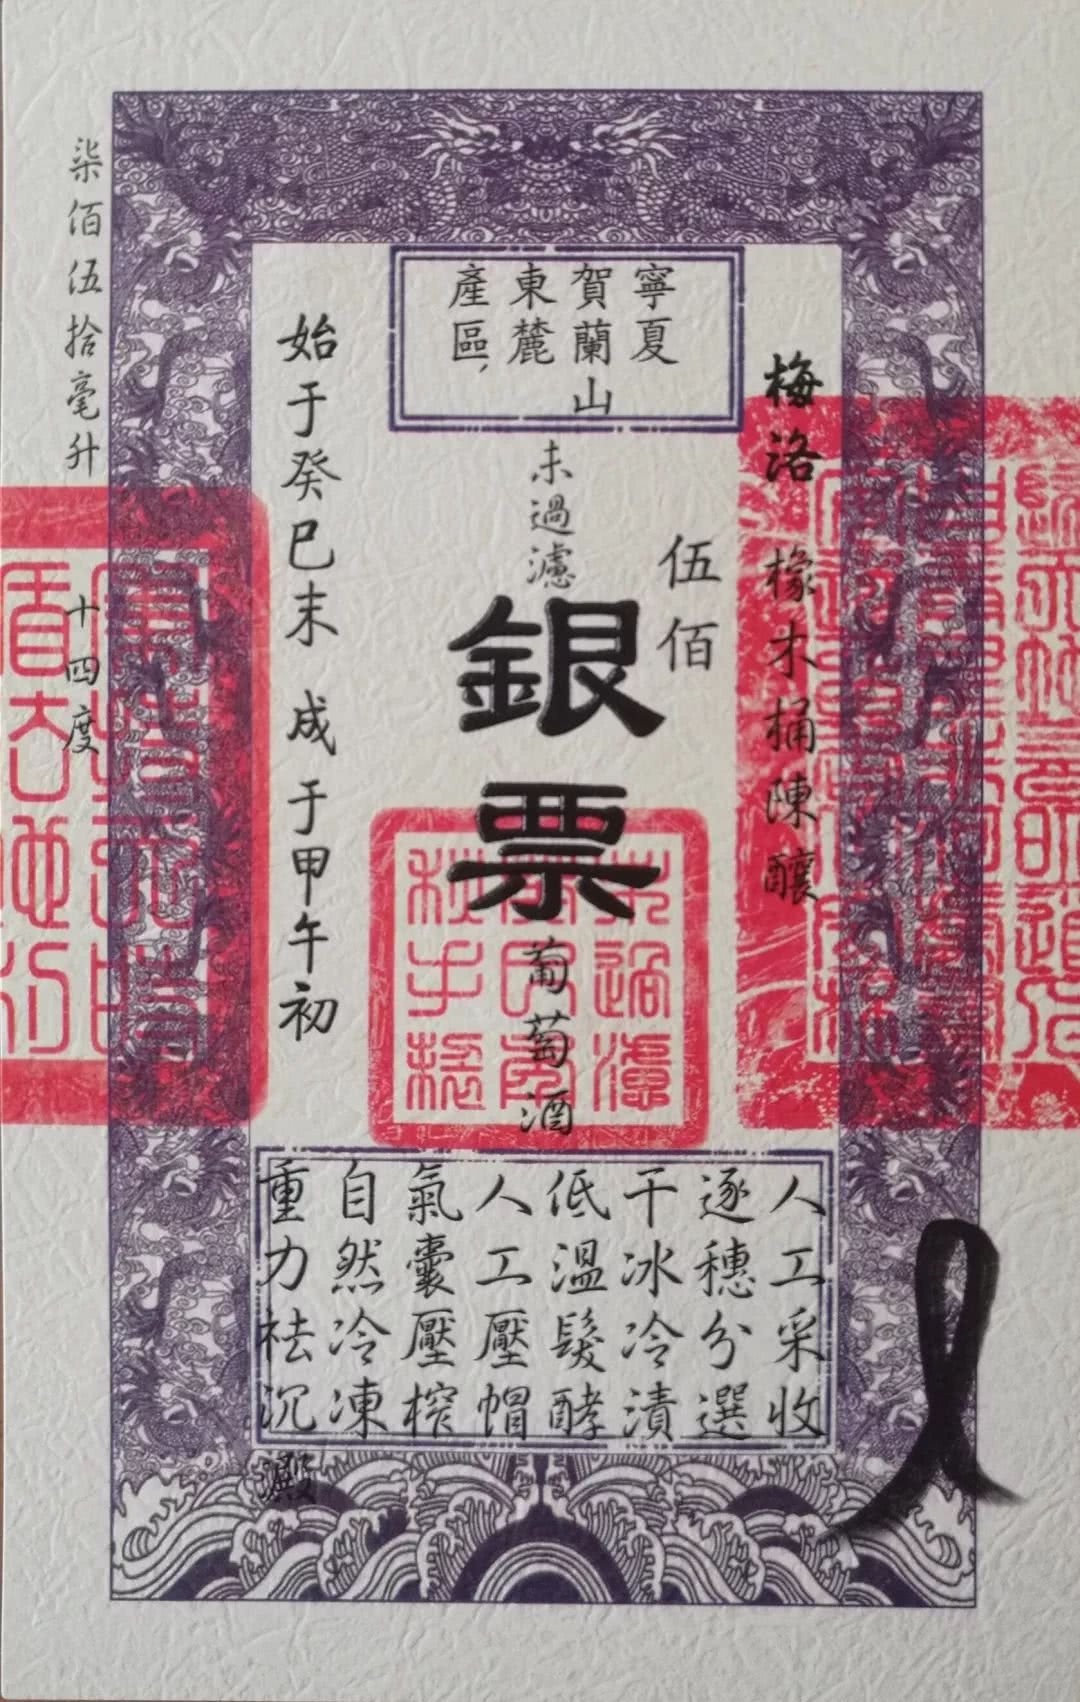 寧夏
賀蘭山
東麓
產區,
梅洛 橡木桶陳釀
伍佰
未過濾
銀票
葡萄酒
始于癸巳末 成于甲午初
柒佰伍拾毫升
十四度
人工采收
逐穗分選
干冰冷漬
低溫髮酵
人工壓帽
氣囊壓榨
自然冷凍
重力祛沉澱